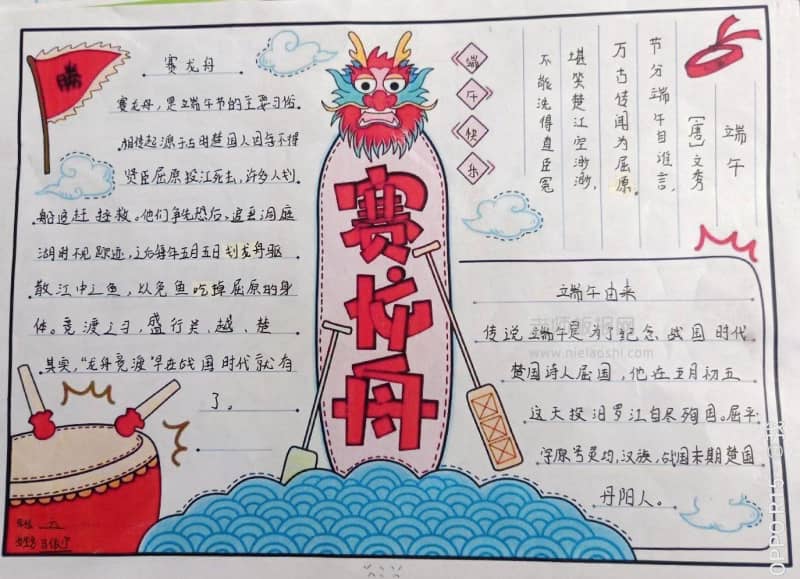 勝
赛龙舟
赛龙舟，是端午节的主要习俗。
相传起源于古时楚国人因舍不得
贤臣屈原投江死去，许多人划
船追赶拯救。他们争先恐后，追至洞庭
湖时不见踪迹，之后每年五月五日划龙舟驱
散江中之鱼，以免鱼吃掉屈原的身
体。竞渡之习，盛行吴、越、楚
其实，“龙舟竞渡”早在战国时代就有
了。
赛龙舟
端
午
快
乐
端午
[唐]文秀
节分端午自谁言，
万古传闻为屈原。
堪笑楚江空渺渺，
不能洗得直臣冤
端午由来
传说端午是为了纪念战国时代
楚国诗人屈国，他在五月初五
这天投汨罗江自尽殉国。屈平
字原号灵均，汉族，战国末期楚国
丹阳人。
老师板报网
www.nielaoshi.com
姓名
OPPO R11s